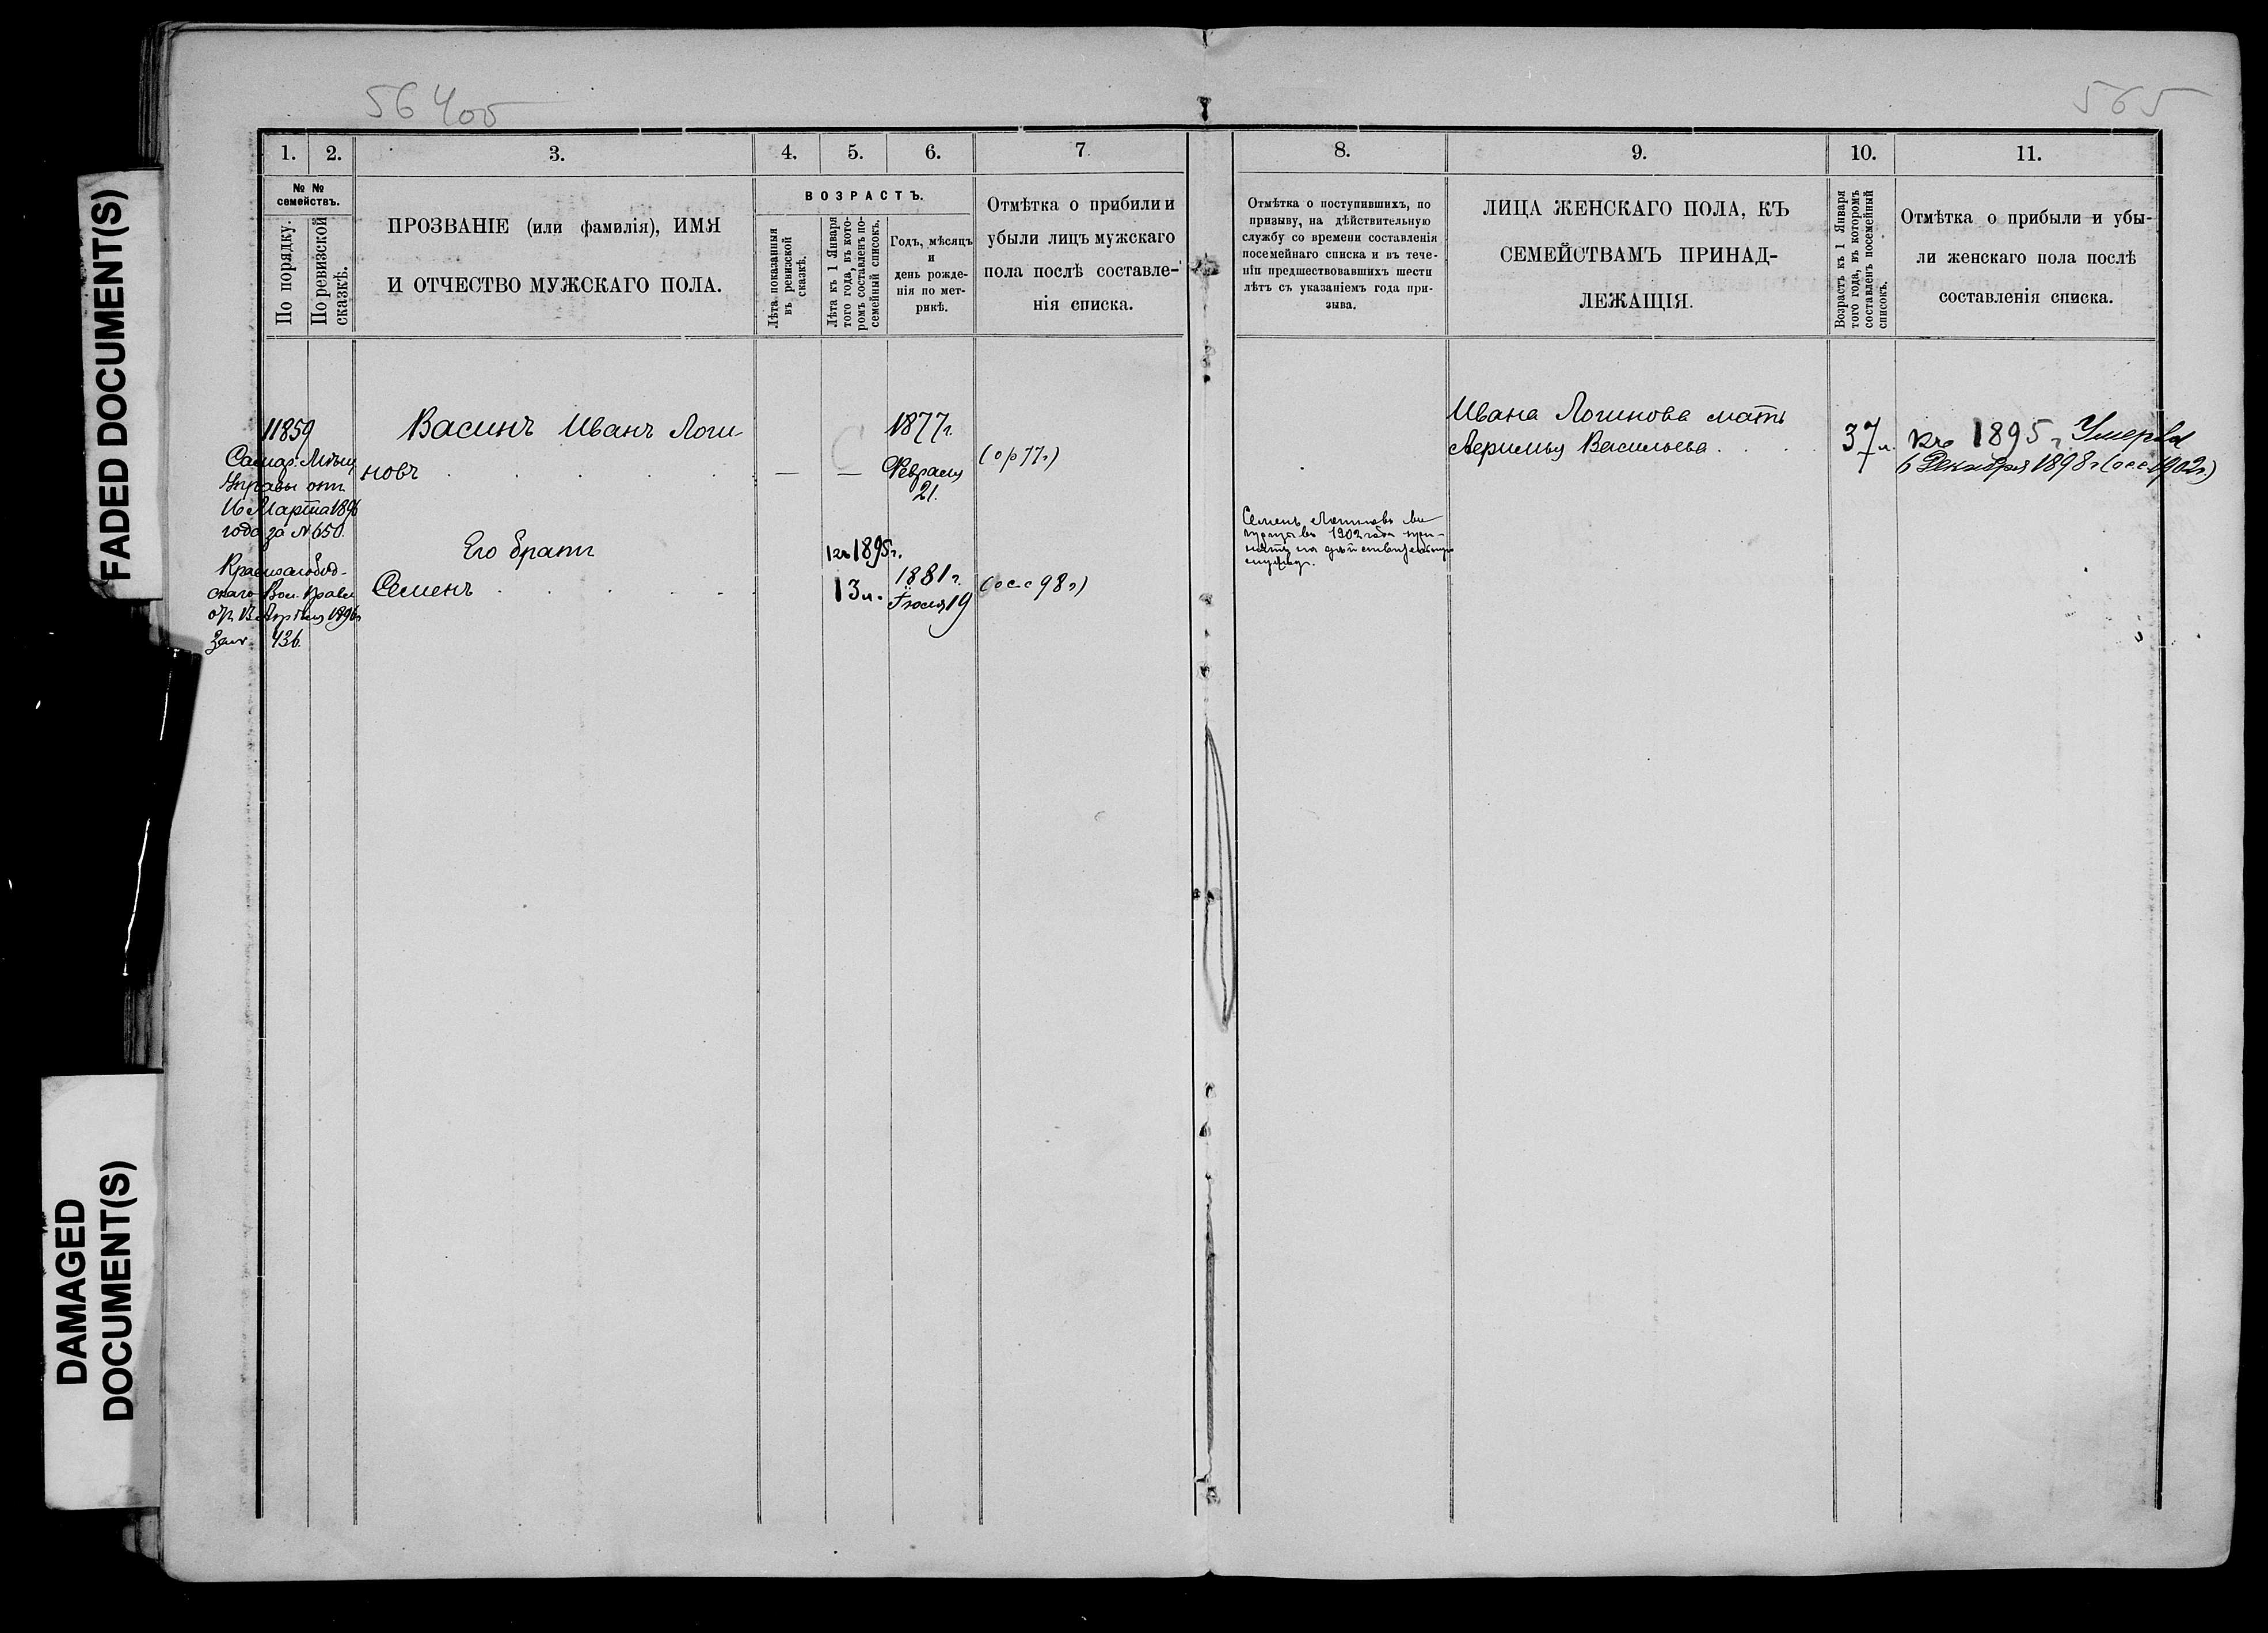 FADED DOCUMENT(S)
DAMAGED
DOCUMENT(S)
564об
565
1.
2.
3.
4.
5.
6.
7
№ №
семействъ.
По порядку.
По ревизской
сказкѣ.
ПРОЗВАНІЕ (или фамилія), ИМЯ
И ОТЧЕСТВО МУЖСКАГО ПОЛА.
ВОЗРАСТЪ.
Лѣта показанныя
въ ревизской
сказкѣ.
Лѣта къ 1 Января
того года, въ кото-
ромъ составленъ по-
семейный списокъ.
Годъ, мѣсяцъ
и
день рожде-
нія по мет-
рикѣ.
Отмѣтка о прибыли и
убыли лицъ мужскаго
пола послѣ составле-
нія списка.
8.
9.
10.
11.
Отмѣтка о поступившихъ, по
призыву, на дѣйствительную
службу со времени составленія
посемейнаго списка и въ тече-
ніи предшествовавшихъ шести
лѣтъ съ указаніемъ года при-
зыва.
ЛИЦА ЖЕНСКАГО ПОЛА, КЪ
СЕМЕЙСТВАМЪ ПРИНАД-
ЛЕЖАЩІЯ.
Возрастъ къ 1 Января
того года, въ которомъ
составленъ посемейный
списокъ.
Отмѣтка о прибыли и убы-
ли женскаго пола послѣ
составленія списка.
11859
Самар. Мѣщ
Управы отн.
16 Марта 1896
года за № 650.
Краснослобод-
скаго Вол. Правл
от 13 Апрѣля 1896г
за № 436.
Васинъ Иванъ Логи-
новъ
— —
1877г.
Февраля
21.
(ор 77г)
Его братъ
Семенъ
къ 1895г.
13 л.
1881 г.
Іюля 19
(осс 98 г)
Семенъ Логиновъ
въ 1902 года при-
нятъ на дѣйствительную
службу.
Ивана Логинова мать
Васильева
37 л.
къ 1895 г. Умерла
6 Декабря 1898 г (осс 1902г)